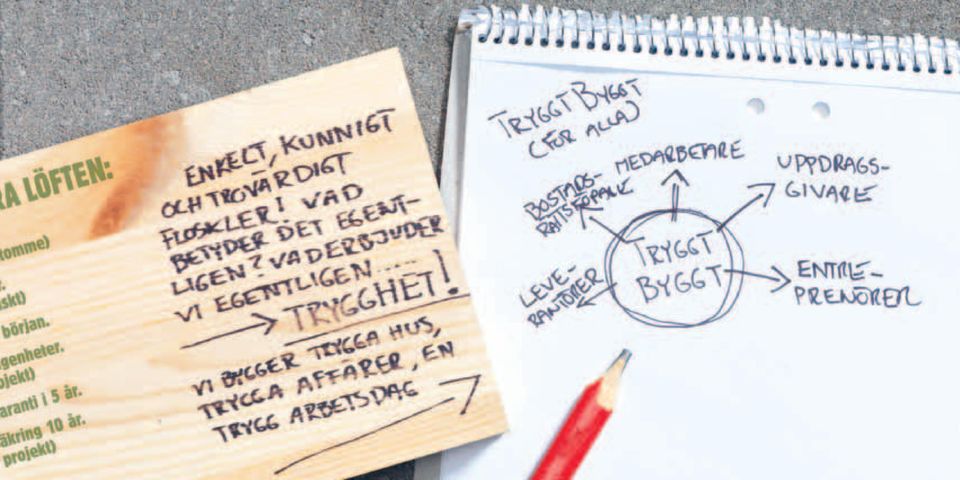 RA LÖFTEN:
komme)
r.
skt)
början.
genheter.
ojekt)
aranti i 5 år.
äkring 10 år.
projekt)
ENKELT, KUNNIGT
OCH TROVÄRDIGT
FLOSKLER! VAD
BETYDER DET EGENT-
LIGEN? VAD ERBJUDER
VI EGENTLIGEN.....
TRYGGHET!
VI BYGGER TRYGGA HUS,
TRYGGA AFFÄRER, EN
TRYGG ARBETSDAG
TRYGGT BYGGT
(FÖR ALLA)
BOSTADS-
RÄTTSKÖPARE
MEDARBETARE
UPPDRAGS-
GIVARE
TRYGGT
BYGGT
LEVE-
RANTÖRER
ENTRE-
PRENÖRER